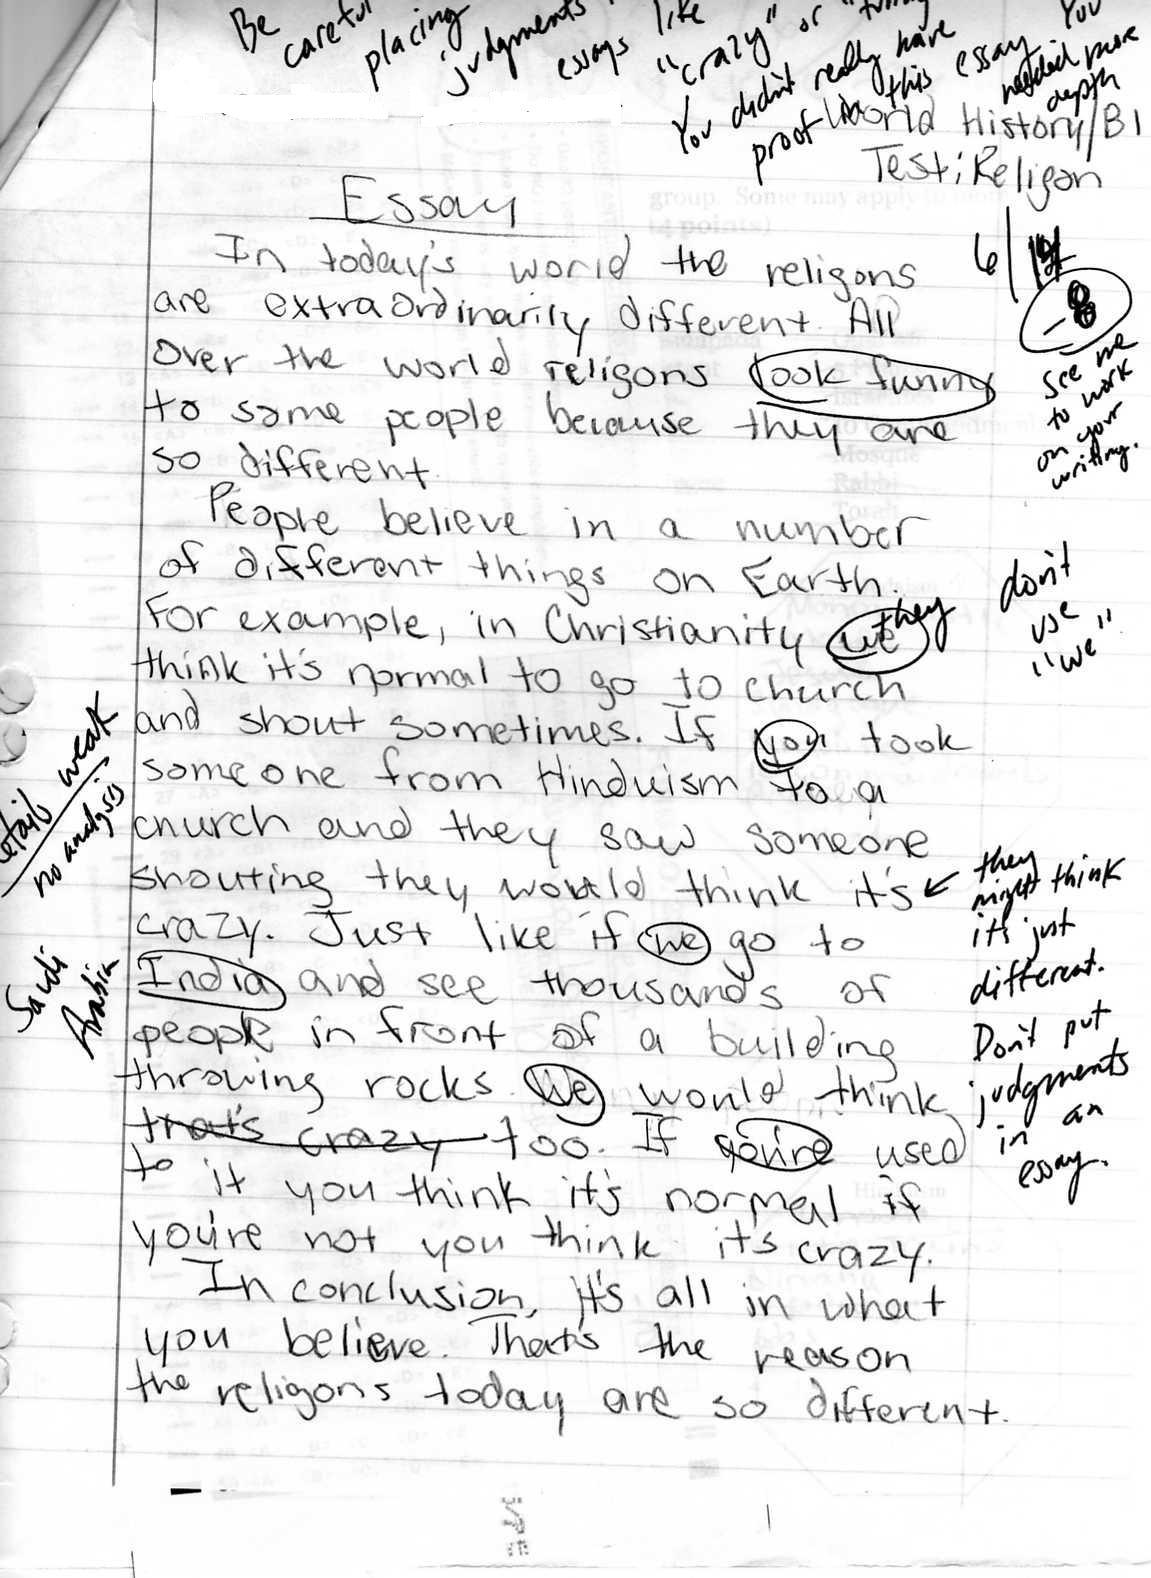 Be careful placing judgments
essays like
"crazy" or "funny"
You didn't really have
proof in this essay You
needed more
depth
World History/B1
Test: Religon
Essay
6/14
-8
see me
to work
on your
writing.
In today's world the religons
are extraordinarily different. All
over the world religons look funny
to some people because they are
so different.
People believe in a number
of different things on Earth.
For example, in Christianity we they
don't
use
"we"
think it's normal to go to church
and shout sometimes. If you took
someone from Hinduism to a
church and they saw someone
shouting they would think it's
crazy. Just like if we go to
India and see thousands of
people in front of a building
throwing rocks. We would think
that's crazy too. If you're used
to it you think it's normal if
you're not you think it's crazy.
details weak
no analysis
Saudi
Arabia
they
might think
it's just
different.
Don't put
judgments
in an
essay.
In conclusion, It's all in what
you believe. That's the reason
the religons today are so different.